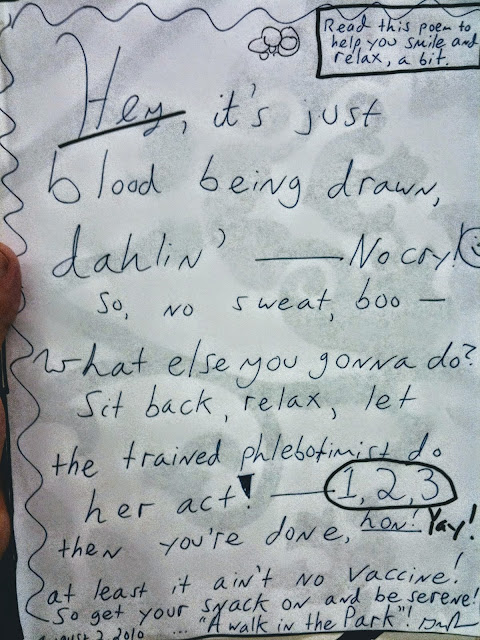 Read this poem to
help you smile and
relax, a bit.
Hey, it's just
blood being drawn,
dahlin' — No cry!
So, no sweat, boo —
what else you gonna do?
Sit back, relax, let
the trained phlebotimist do
her act! — 1, 2, 3
then you're done, hon! Yay!
at least it ain't no vaccine!
So get your snack on and be serene!
August 2, 2010 ... "A walk in the Park"!